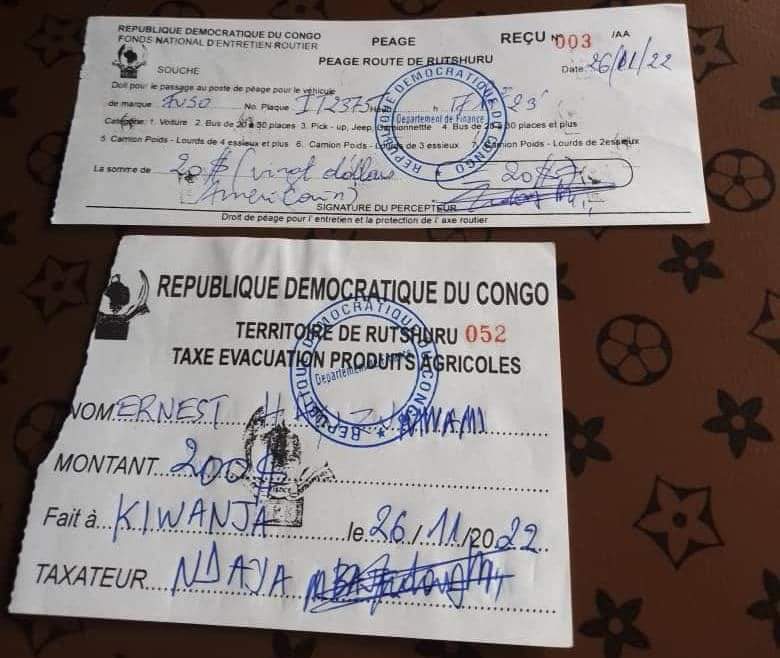 REPUBLIQUE DEMOCRATIQUE DU CONGO
FONDS NATIONAL D'ENTRETIEN ROUTIER
PEAGE
REÇU N° 003 /AA
PEAGE ROUTE DE RUTSHURU
SOUCHE
Date: 26/11/22
Doit pour le passage au poste de péage pour le véhicule
de marque FUSO No. Plaque
Catégorie: 1. Voiture 2. Bus de 20 à 30 places 3. Pick - up, Jeep, Camionnettte 4. Bus de places et plus
5 Camion Poids - Lourds de 4 essieux et plus 6. Camion Poids - Lourds de 3 essieux 7. Camion Poids - Lourds de 2essieux
La somme de 20$ (vingt dollars
Américain) 20$
SIGNATURE DU PERCEPTEUR
Droit de péage pour l' entretien et la protection de l' axe routier
REPUBLIQUE DEMOCRATIQUE DU CONGO
Département de Finance
REPUBLIQUE DEMOCRATIQUE DU CONGO
TERRITOIRE DE RUTSHURU 052
TAXE EVACUATION PRODUITS AGRICOLES
REPUBLIQUE DEMOCRATIQUE DU CONGO
Département de Finance
NOM ERNEST
MONTANT 200$
Fait à KIWANJA le 26/11/2022
TAXATEUR NDAYA